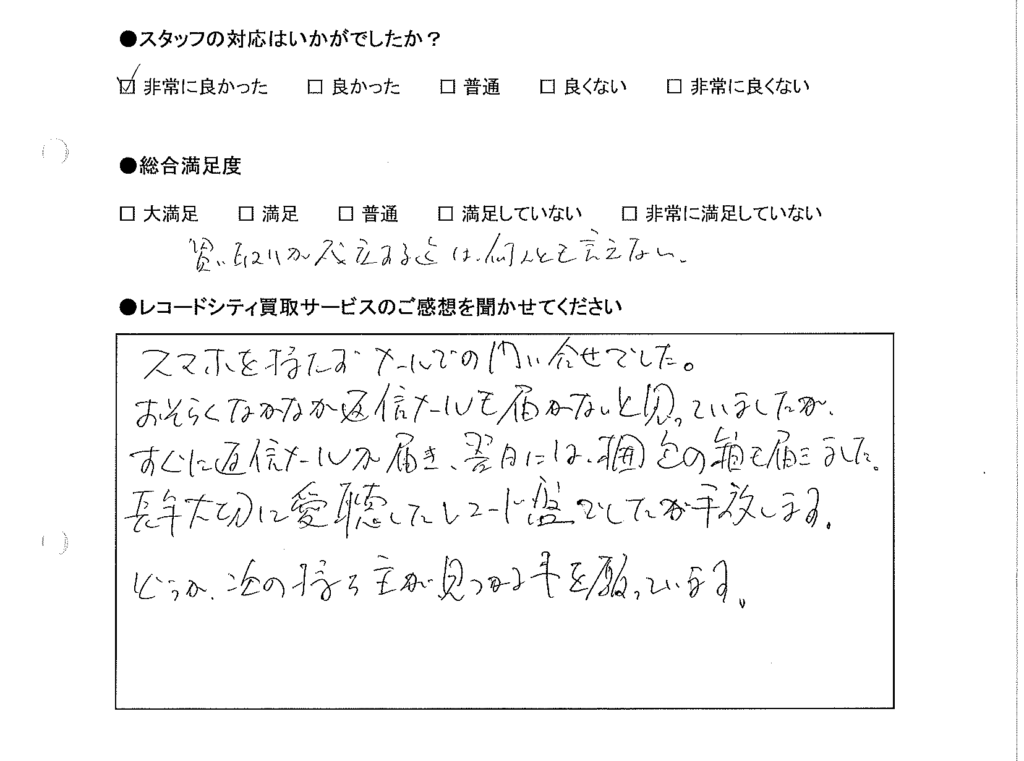 ●スタッフの対応はいかがでしたか？
☑ 非常に良かった □ 良かった □ 普通 □ 良くない □ 非常に良くない
●総合満足度
□ 大満足 □ 満足 □ 普通 □ 満足していない □ 非常に満足していない
買い取りが成立する迄は、何んとも言えない。
●レコードシティ買取サービスのご感想を聞かせてください
スマホを持たずメールでの問い合せでした。
おそらくなかなか返信メールも届かないと見っていましたが、
すぐに返信メールが届き、翌日には、梱包の箱も届きました。
長年大切に愛聴したレコード盤でしたが手放します。
どうか、次の持ち主が見つかる事を願っています。